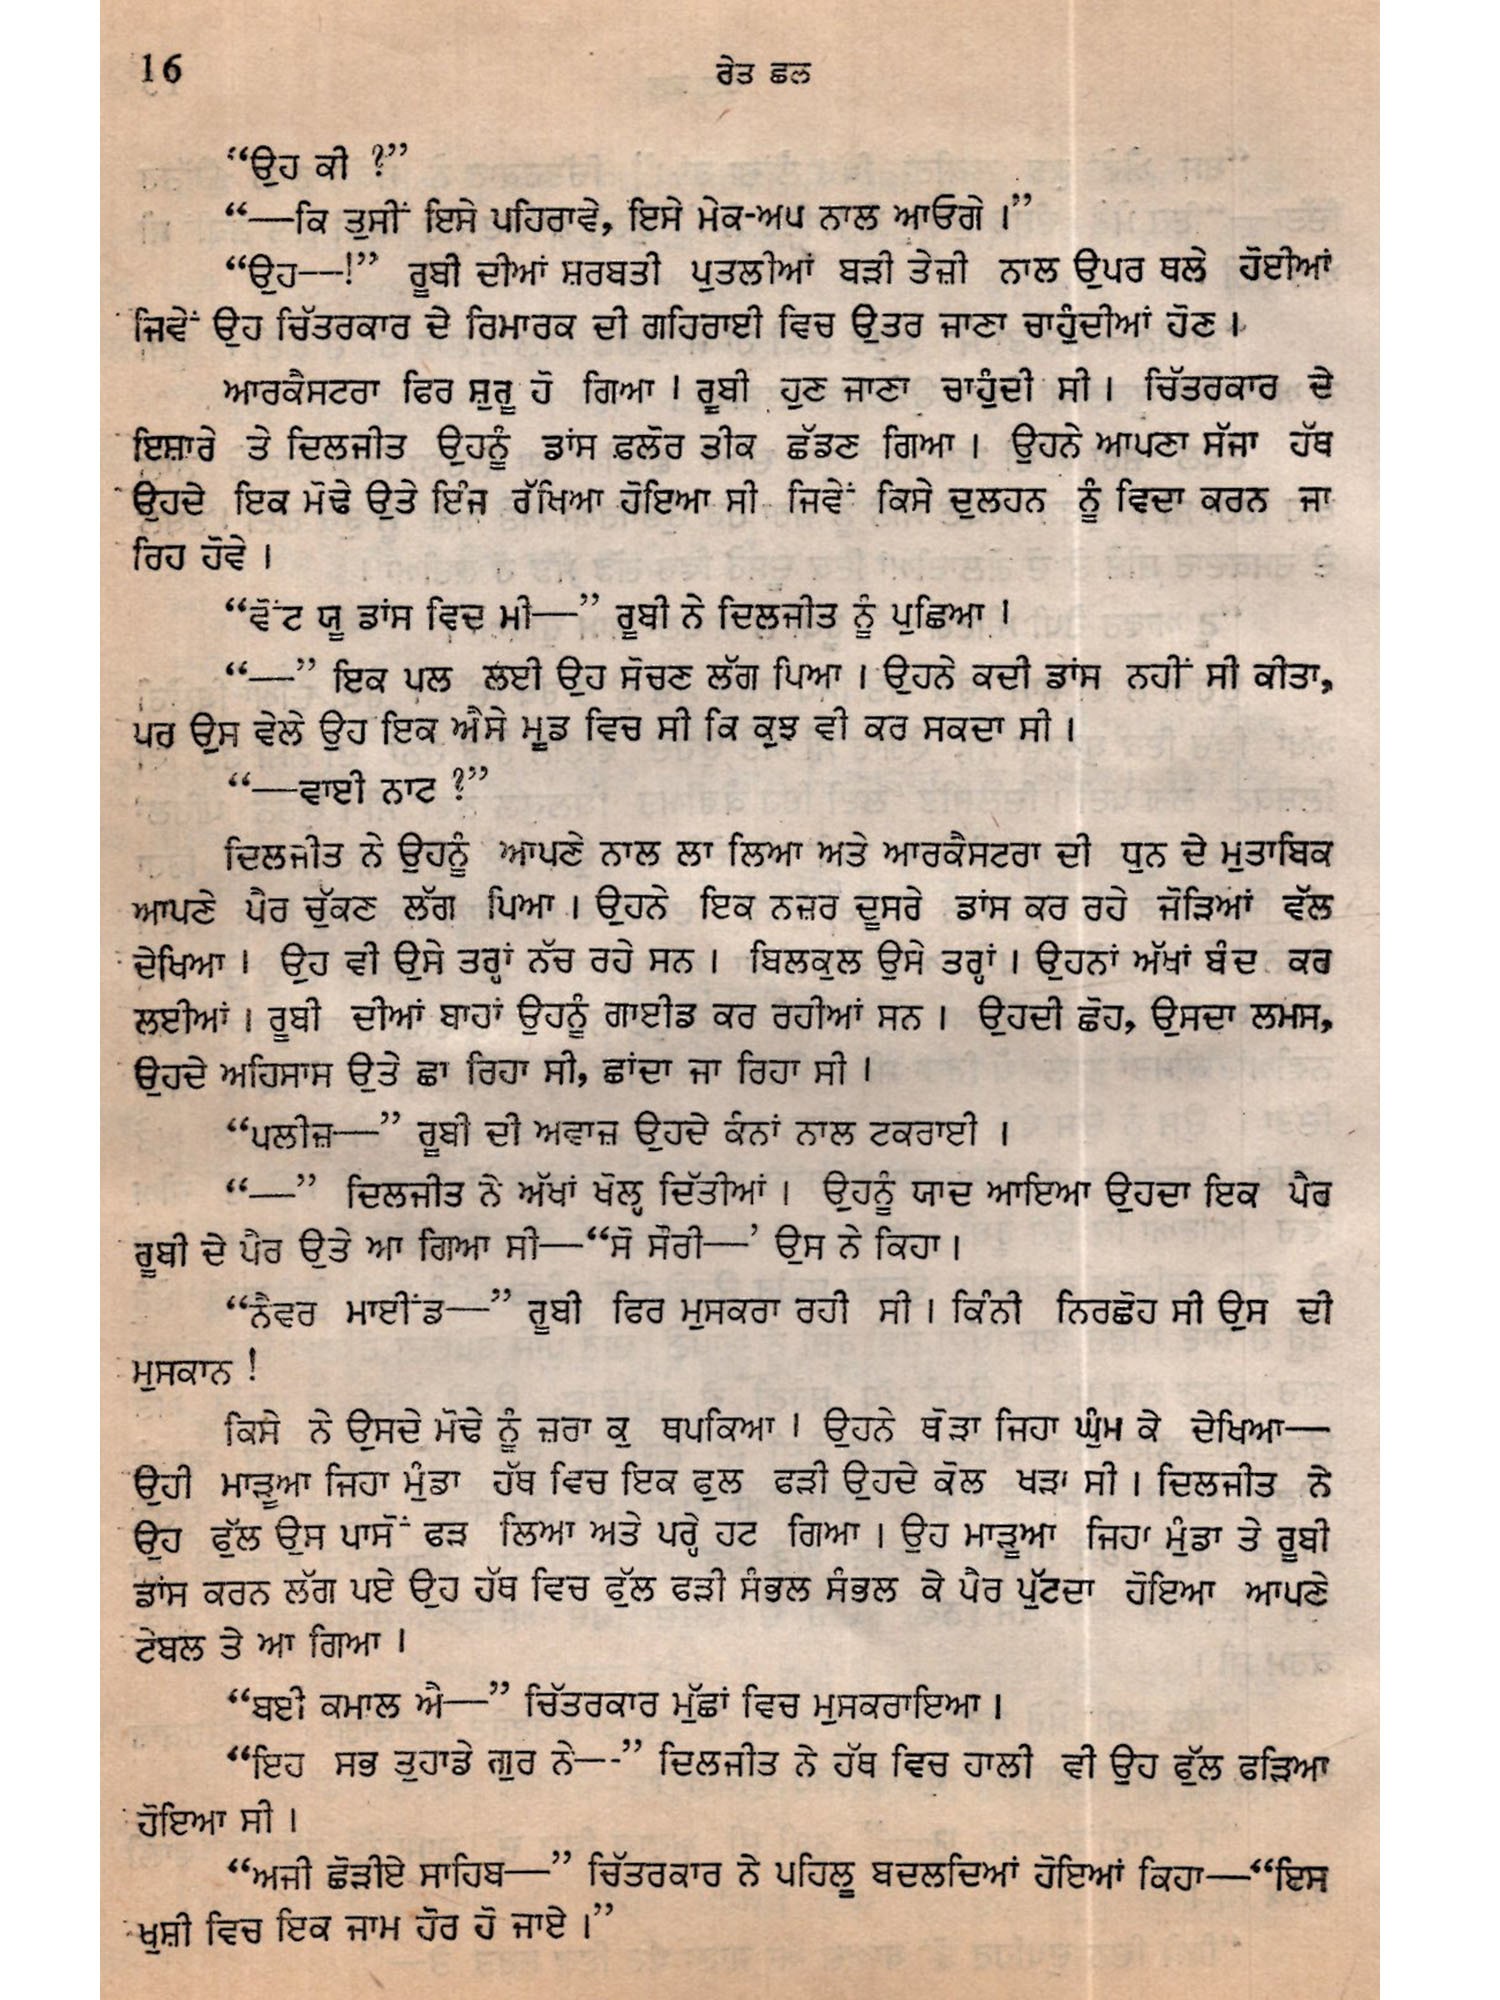 16
ਰੇਤ ਛਲ
“ਉਹ ਕੀ ?”
“—ਕਿ ਤੁਸੀਂ ਇਸੇ ਪਹਿਰਾਵੇ, ਇਸੇ ਮੇਕ-ਅਪ ਨਾਲ ਆਓਗੇ।”
“ਉਹ—!” ਰੂਬੀ ਦੀਆਂ ਸ਼ਰਬਤੀ ਪੁਤਲੀਆਂ ਬੜੀ ਤੇਜ਼ੀ ਨਾਲ ਉਪਰ ਥਲੇ ਹੋਈਆਂ
ਜਿਵੇਂ ਉਹ ਚਿੱਤਰਕਾਰ ਦੇ ਰਿਮਾਰਕ ਦੀ ਗਹਿਰਾਈ ਵਿਚ ਉਤਰ ਜਾਣਾ ਚਾਹੁੰਦੀਆਂ ਹੋਣ।
ਆਰਕੈਸਟਰਾ ਫਿਰ ਸ਼ੁਰੂ ਹੋ ਗਿਆ। ਰੂਬੀ ਹੁਣ ਜਾਣਾ ਚਾਹੁੰਦੀ ਸੀ। ਚਿੱਤਰਕਾਰ ਦੇ
ਇਸ਼ਾਰੇ ਤੇ ਦਿਲਜੀਤ ਉਹਨੂੰ ਡਾਂਸ ਫ਼ਲੋਰ ਤੀਕ ਛੱਡਣ ਗਿਆ। ਉਹਨੇ ਆਪਣਾ ਸੱਜਾ ਹੱਥ
ਉਹਦੇ ਇਕ ਮੋਢੇ ਉਤੇ ਇੰਜ ਰੱਖਿਆ ਹੋਇਆ ਸੀ ਜਿਵੇਂ ਕਿਸੇ ਦੁਲਹਨ ਨੂੰ ਵਿਦਾ ਕਰਨ ਜਾ
ਰਿਹ ਹੋਵੇ।
“ਵੋਂਟ ਯੂ ਡਾਂਸ ਵਿਦ ਮੀ—” ਰੂਬੀ ਨੇ ਦਿਲਜੀਤ ਨੂੰ ਪੁਛਿਆ।
“—” ਇਕ ਪਲ ਲਈ ਉਹ ਸੋਚਣ ਲੱਗ ਪਿਆ। ਉਹਨੇ ਕਦੀ ਡਾਂਸ ਨਹੀਂ ਸੀ ਕੀਤਾ,
ਪਰ ਉਸ ਵੇਲੇ ਉਹ ਇਕ ਐਸੇ ਮੂਡ ਵਿਚ ਸੀ ਕਿ ਕੁਝ ਵੀ ਕਰ ਸਕਦਾ ਸੀ।
“—ਵਾਈ ਨਾਟ ?”
ਦਿਲਜੀਤ ਨੇ ਉਹਨੂੰ ਆਪਣੇ ਨਾਲ ਲਾ ਲਿਆ ਅਤੇ ਆਰਕੈਸਟਰਾ ਦੀ ਧੁਨ ਦੇ ਮੁਤਾਬਿਕ
ਆਪਣੇ ਪੈਰ ਚੁੱਕਣ ਲੱਗ ਪਿਆ। ਉਹਨੇ ਇਕ ਨਜ਼ਰ ਦੂਸਰੇ ਡਾਂਸ ਕਰ ਰਹੇ ਜੋੜਿਆਂ ਵੱਲ
ਦੇਖਿਆ। ਉਹ ਵੀ ਉਸੇ ਤਰ੍ਹਾਂ ਨੱਚ ਰਹੇ ਸਨ। ਬਿਲਕੁਲ ਉਸੇ ਤਰ੍ਹਾਂ। ਉਹਨਾਂ ਅੱਖਾਂ ਬੰਦ ਕਰ
ਲਈਆਂ। ਰੂਬੀ ਦੀਆਂ ਬਾਹਾਂ ਉਹਨੂੰ ਗਾਈਡ ਕਰ ਰਹੀਆਂ ਸਨ। ਉਹਦੀ ਛੋਹ, ਉਸਦਾ ਲਮਸ,
ਉਹਦੇ ਅਹਿਸਾਸ ਉਤੇ ਛਾ ਰਿਹਾ ਸੀ, ਛਾਂਦਾ ਜਾ ਰਿਹਾ ਸੀ।
“ਪਲੀਜ਼—” ਰੂਬੀ ਦੀ ਅਵਾਜ਼ ਉਹਦੇ ਕੰਨਾਂ ਨਾਲ ਟਕਰਾਈ।
“—” ਦਿਲਜੀਤ ਨੇ ਅੱਖਾਂ ਖੋਲ੍ਹ ਦਿੱਤੀਆਂ। ਉਹਨੂੰ ਯਾਦ ਆਇਆ ਉਹਦਾ ਇਕ ਪੈਰ
ਰੂਬੀ ਦੇ ਪੈਰ ਉਤੇ ਆ ਗਿਆ ਸੀ—“ਸੋ ਸੌਰੀ—’ ਉਸ ਨੇ ਕਿਹਾ।
“ਨੈਵਰ ਮਾਈਂਡ—” ਰੂਬੀ ਫਿਰ ਮੁਸਕਰਾ ਰਹੀ ਸੀ। ਕਿੰਨੀ ਨਿਰਛੋਹ ਸੀ ਉਸ ਦੀ
ਮੁਸਕਾਨ !
ਕਿਸੇ ਨੇ ਉਸਦੇ ਮੋਢੇ ਨੂੰ ਜ਼ਰਾ ਕੁ ਥਪਕਿਆ। ਉਹਨੇ ਥੋੜਾ ਜਿਹਾ ਘੁੰਮ ਕੇ ਦੇਖਿਆ—
ਉਹੀ ਮਾੜੂਆ ਜਿਹਾ ਮੁੰਡਾ ਹੱਥ ਵਿਚ ਇਕ ਫੁਲ ਫੜੀ ਉਹਦੇ ਕੋਲ ਖੜਾ ਸੀ। ਦਿਲਜੀਤ ਨੇ
ਉਹ ਫੁੱਲ ਉਸ ਪਾਸੋਂ ਫੜ ਲਿਆ ਅਤੇ ਪਰ੍ਹੇ ਹਟ ਗਿਆ। ਉਹ ਮਾੜੂਆ ਜਿਹਾ ਮੁੰਡਾ ਤੇ ਰੂਬੀ
ਡਾਂਸ ਕਰਨ ਲੱਗ ਪਏ ਉਹ ਹੱਥ ਵਿਚ ਫੁੱਲ ਫੜੀ ਸੰਭਲ ਸੰਭਲ ਕੇ ਪੈਰ ਪੁੱਟਦਾ ਹੋਇਆ ਆਪਣੇ
ਟੇਬਲ ਤੇ ਆ ਗਿਆ।
“ਬਈ ਕਮਾਲ ਐ—” ਚਿੱਤਰਕਾਰ ਮੁੱਛਾਂ ਵਿਚ ਮੁਸਕਰਾਇਆ।
“ਇਹ ਸਭ ਤੁਹਾਡੇ ਗੁਰ ਨੇ—-” ਦਿਲਜੀਤ ਨੇ ਹੱਥ ਵਿਚ ਹਾਲੀ ਵੀ ਉਹ ਫੁੱਲ ਫੜਿਆ
ਹੋਇਆ ਸੀ।
“ਅਜੀ ਛੋੜੀਏ ਸਾਹਿਬ—” ਚਿੱਤਰਕਾਰ ਨੇ ਪਹਿਲੂ ਬਦਲਦਿਆਂ ਹੋਇਆਂ ਕਿਹਾ—“ਇਸ
ਖੁਸ਼ੀ ਵਿਚ ਇਕ ਜਾਮ ਹੋਰ ਹੋ ਜਾਏ।”